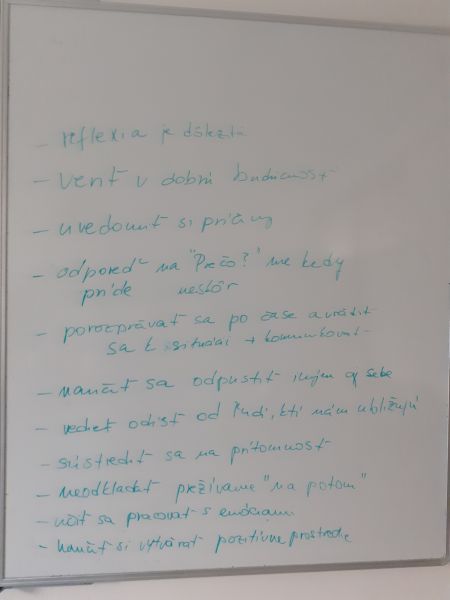 - reflexia je dôležitá
- veriť v dobrú budúcnosť
- uvedomiť si príčiny
- odpoveď na "Prečo?" nie kedy
príde neskôr
- porozprávať sa po čase a vrátiť
sa k situácii + komunikovať
- naučiť sa odpustiť iným aj sebe
- vedieť odísť od ľudí, ktí nám ubližujú
- sústrediť sa na prítomnosť
- neodkladať prežívanie "na potom"
- učiť sa pracovať s emóciami
- naučiť si vytvárať pozitívne prostredie